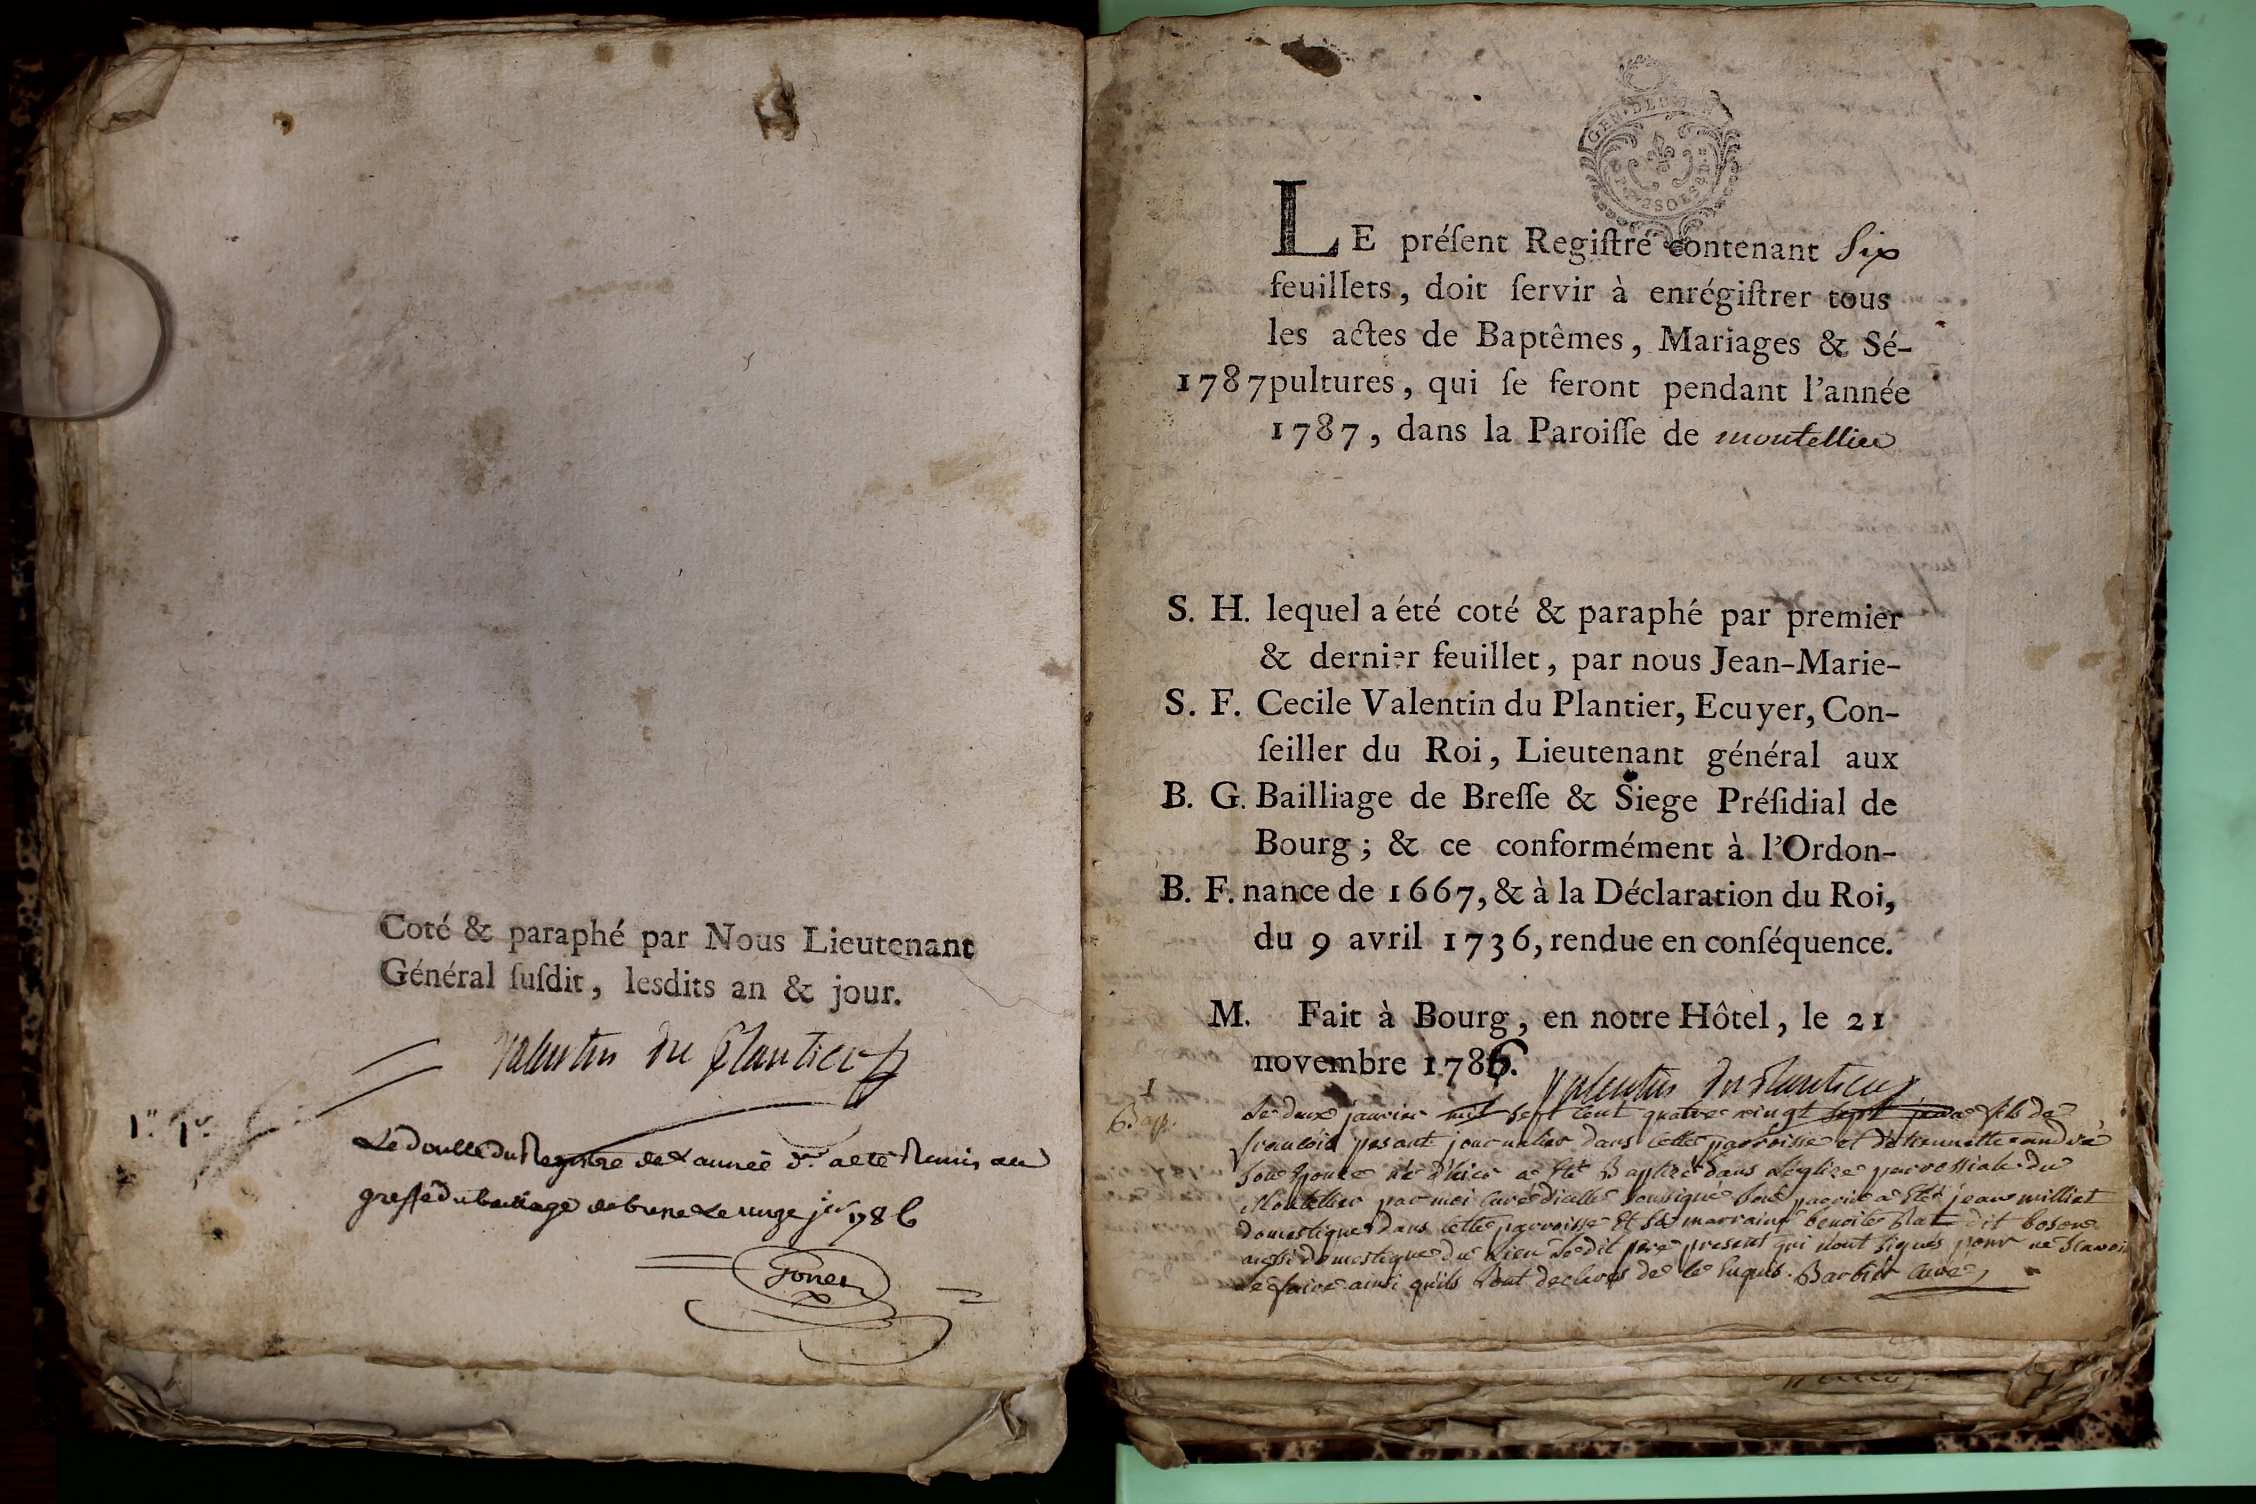 Coté & paraphé par Nous Lieutenant
Général ſuſdit, lesdits an & jour.
Valentin du Plantier
Le double du Registre de l'année dre a eté Remis au
greffe du bailiage de bresse Le unze jer 1786
GEN DE
LE préſent Regiſtre contenant Six
feuillets, doit ſervir à enrégiſtrer tous
les actes de Baptêmes, Mariages & Sé-
1787 pultures, qui ſe feront pendant l'année
1787, dans la Paroiſſe de montellier
S. H. lequel a été coté & paraphé par premier
& dernier feuillet, par nous Jean-Marie-
S. F. Cecile Valentin du Plantier, Ecuyer, Con-
ſeiller du Roi, Lieutenant général aux
B. G. Bailliage de Breſſe & Siege Préſidial de
Bourg ; & ce conformément à l'Ordon-
B. F. nance de 1667, & à la Déclaration du Roi,
du 9 avril 1736, rendue en conſéquence.
M. Fait à Bourg, en notre Hôtel, le 21
novembre 1786.
Valentin du Plantier
1
Bap.
Le deux janvier mil sept cent quatre vingt sept fils de
francois journalier dans cette parroisse et d'etiennette andré
son epouse né d'hier a eté Baptizé dans l'eglize parrossiale du
Montellier par moi curé d'icelle soussigné son parrin a eté jean milliat
domestique dans cette parroisse et sa marraine benoite dit
aussi domestique du lieu le dit pere present qui n'ont signés pour ne scavoir
le faire ainsi qu'ils l'ont declarés de ce enquis. Barbier curé